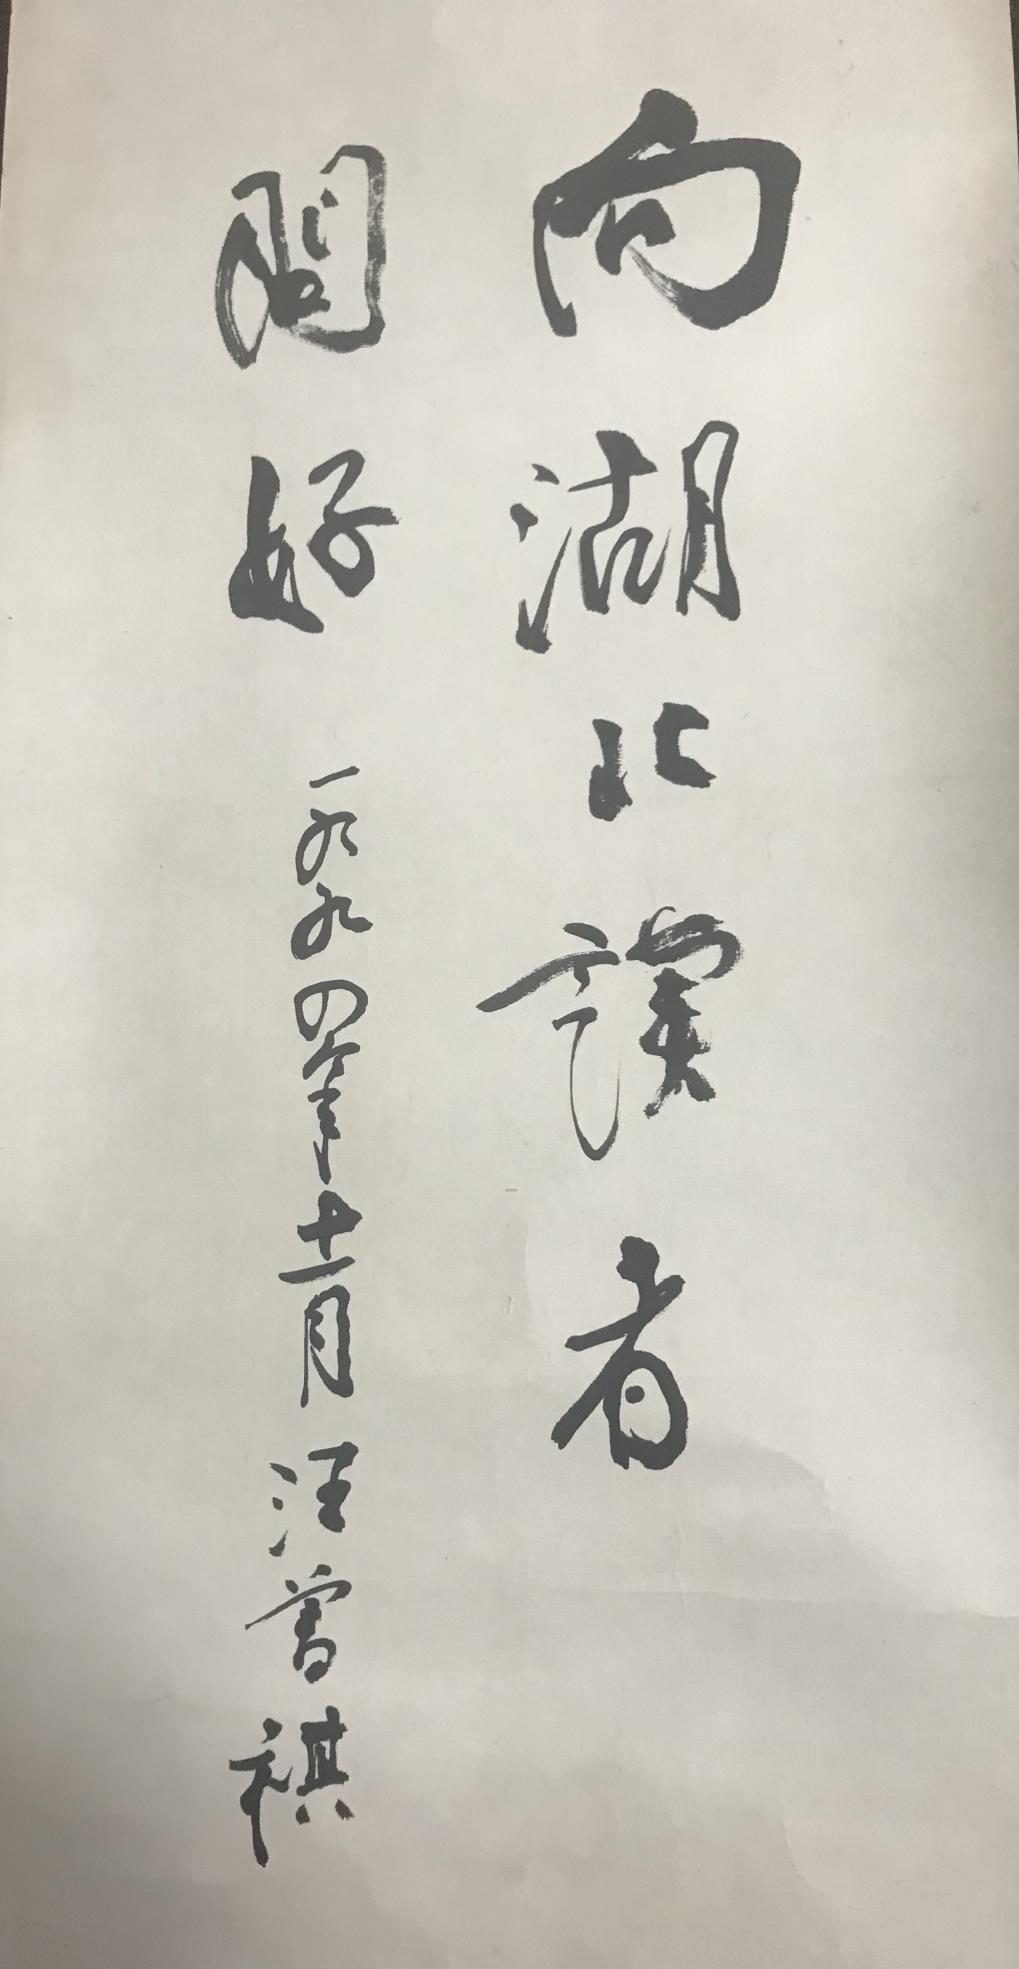 向湖北讀者
問好 一九九四年十一月 汪曾祺